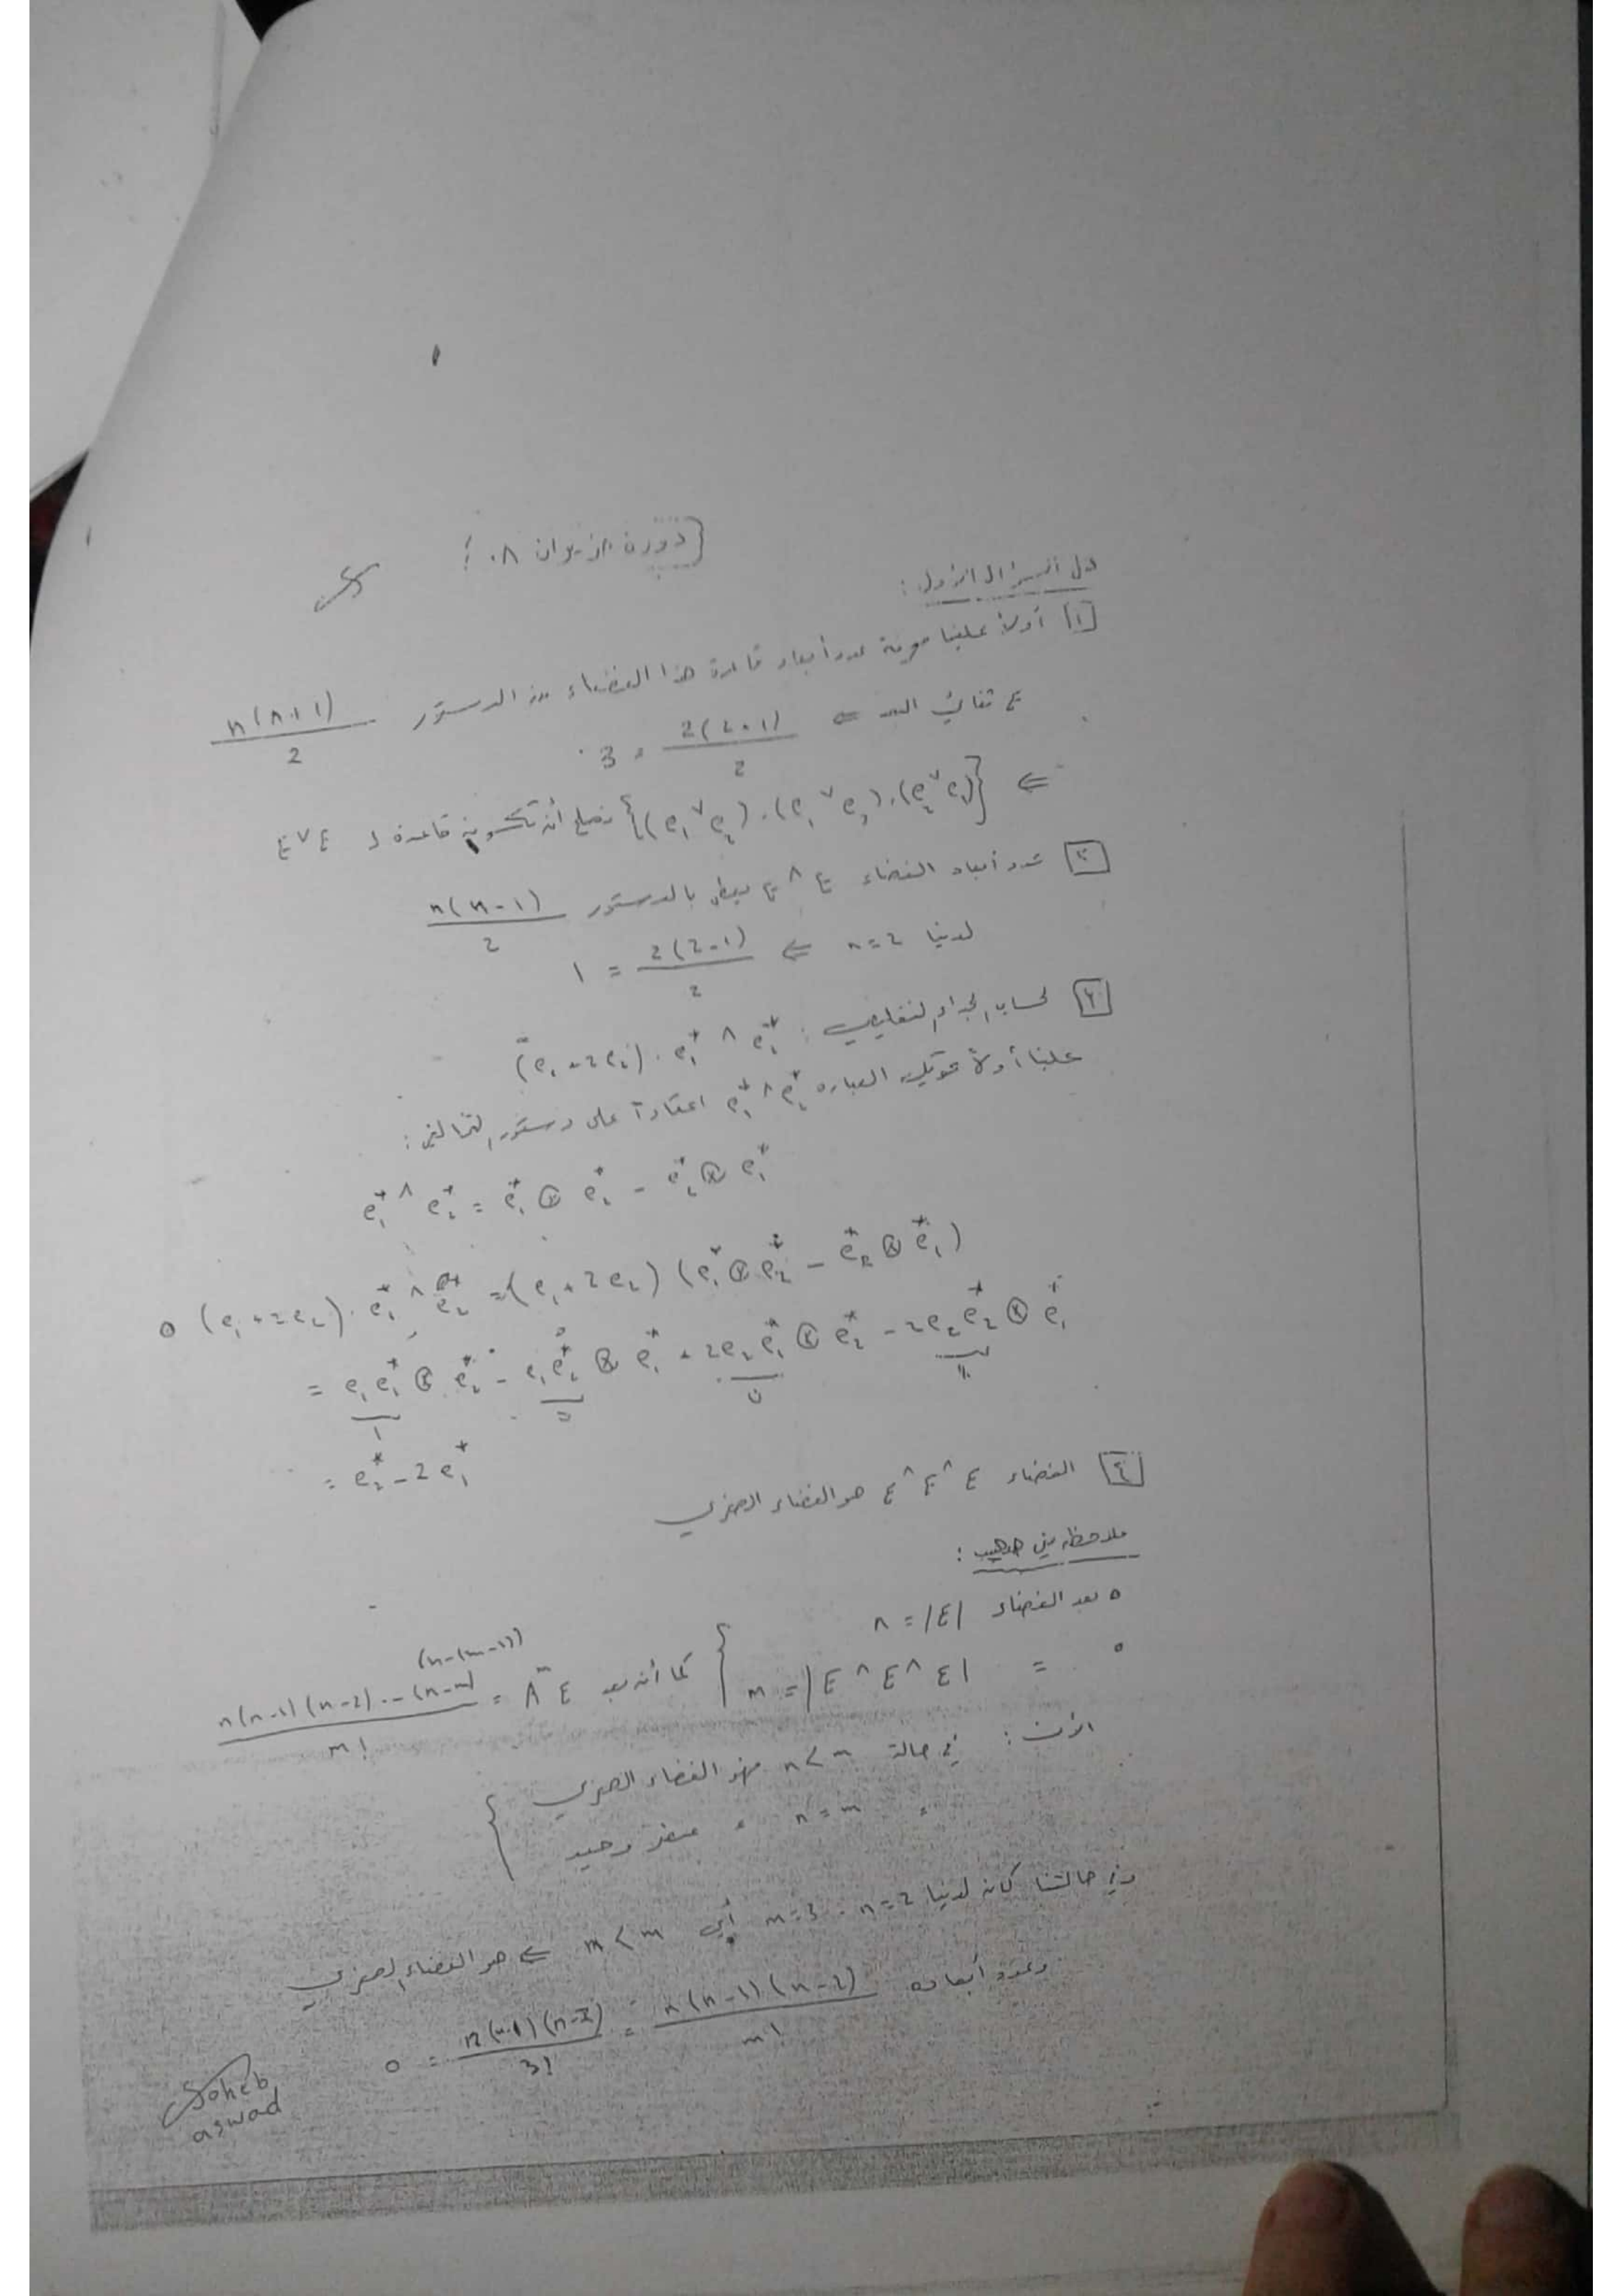 حل السؤال الأول :
[1] أولاً علينا معرفة عدد أبعاد قاعدة هذا الفضاء من الدستور n(n+1)/2
E ثنائي البعد ⇐ 2(2+1)/2 = 3
⇐ {(e₁∨e₂).(e₁∨e₁).(e₂∨e₂)} تصلح أن تكون قاعدة لـ E∨E
[2] عدد أبعاد الفضاء E∧E يعطى بالدستور n(n-1)/2
لدينا n=2 ⇐ 2(2-1)/2 = 1
[3] لحساب الجداء التقليصي : (e₁+2e₂).e₁*∧e₂*
علينا أولاً تفكيك العبارة e₁*∧e₂* اعتماداً على دستور التخالفي :
e₁*∧e₂* = e₁*⊗e₂* - e₂*⊗e₁*
(e₁+2e₂).e₁*∧e₂* = (e₁+2e₂)(e₁*⊗e₂* - e₂*⊗e₁*)
= e₁e₁*⊗e₂* - e₁e₂*⊗e₁* + 2e₂e₁*⊗e₂* - 2e₂e₂*⊗e₁*
= e₂* - 2e₁*
[4] الفضاء E∧E∧E هو الفضاء الصفري
ملاحظة من صهيب :
∘ بعد الفضاء |E| = n
∘ = |E∧E∧E| = m } كما أن بعد Λᵐ E = n(n-1)(n-2)...(n-(m-1))/m!
الآن : في حالة n<m فهو الفضاء الصفري
n=m عنصر وحيد
وفي حالتنا كان لدينا n=2 . m=3 أي n<m ⇐ هو الفضاء الصفري
وعدد أبعاده n(n-1)(n-2)/m! = n(n-1)(n-2)/3! = 0
Soheb
aswad